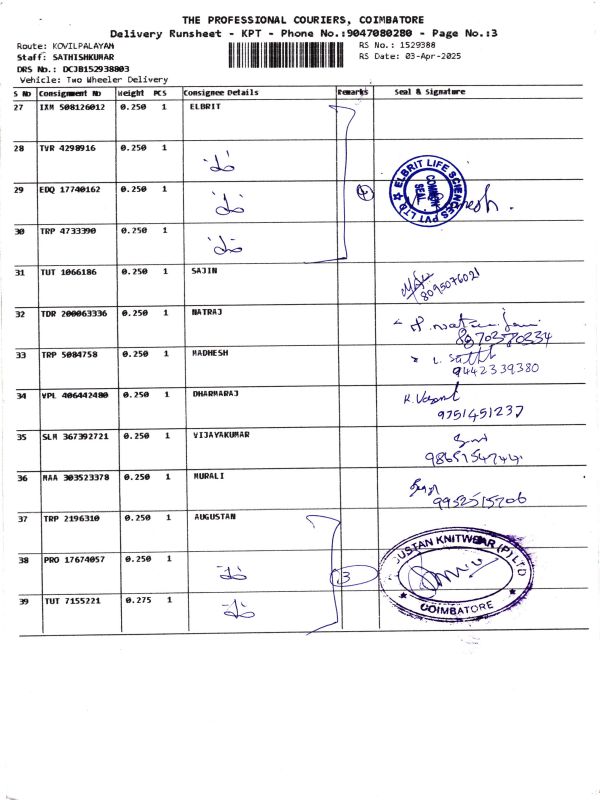 THE PROFESSIONAL COURIERS, COIMBATORE
Delivery Runsheet - KPT - Phone No.:9047080280 - Page No.:3
Route: KOVILPALAYAM
RS No.: 1529388
Staff: SATHISHKUMAR
RS Date: 03-Apr-2025
DRS No.: DCJB152938803
Vehicle: Two Wheeler Delivery
S No Consignment No Weight PCS Consignee Details Remarks Seal & Signature
27 IXM 508126012 0.250 1 ELBRIT
28 TVR 4298916 0.250 1
29 EDQ 17740162 0.250 1 4
ELBRIT LIFE SCIENCES PVT LTD
COMMON SEAL
30 TRP 4733390 0.250 1
31 TUT 1066186 0.250 1 SAJIN
8095076021
32 TDR 200063336 0.250 1 NATRAJ
8870380334
33 TRP 5084758 0.250 1 MADHESH
9442339380
34 VPL 406442480 0.250 1 DHARMARAJ
9751451237
35 SLM 367392721 0.250 1 VIJAYAKUMAR
36 MAA 303523378 0.250 1 MURALI
9952515706
37 TRP 2196310 0.250 1 AUGUSTAN
38 PRO 17674057 0.250 1 3
USTAN KNITWEAR (P) LTD
COIMBATORE
39 TUT 7155221 0.275 1